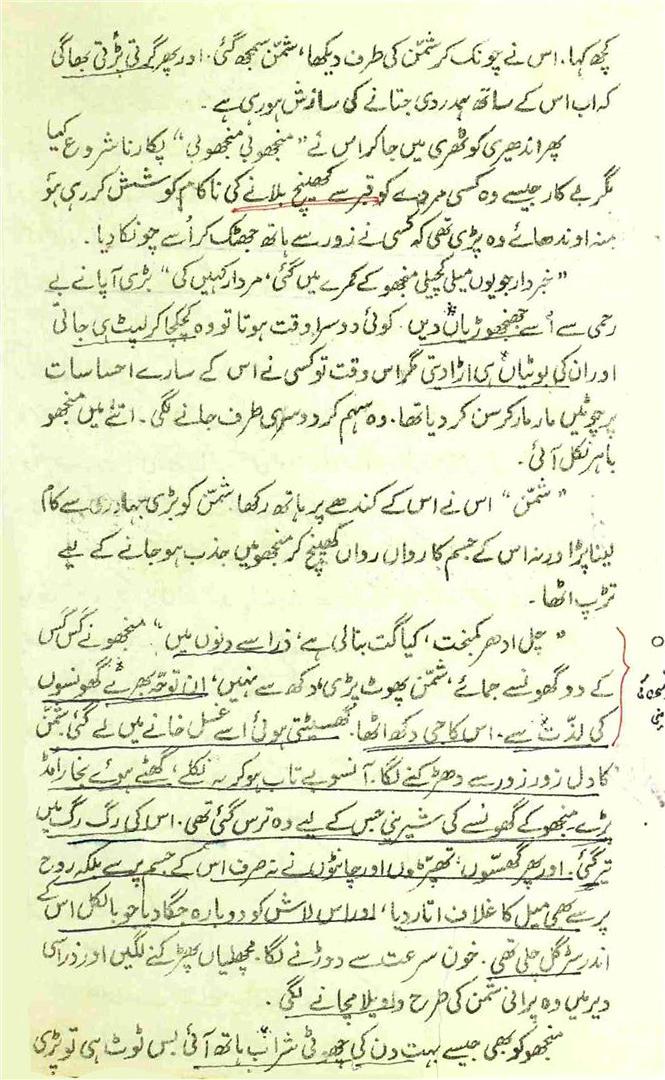 کچھ کہا. اس نے چونک کر شمّن کی طرف دیکھا، شمّن سمجھ گئی. اور پھر گرتی پڑتی بھاگی
کہ اب اس کے ساتھ ہمدردی جتانے کی سازش ہو رہی ہے۔
پھر اندھیری کوٹھری میں جا کر اس نے "منجھو بی منجھو بی" پکارنا شروع کیا
مگر بے کار جیسے وہ کسی مردے کو قبر سے کھینچ بلانے کی ناکام کوشش کر رہی ہو
منہ اوندھائے وہ پڑی تھی کہ کسی نے زور سے ہاتھ جھٹک کر اُسے چونکا دیا۔
"خبردار جو یوں میلی کچیلی منجھو کے کمرے میں گئی، مردار کہیں کی" بڑی آپا نے بے
رحمی سے اُسے جھنجھوڑیاں دیں. کوئی دوسرا وقت ہوتا تو وہ کچکچا کر لپٹ ہی جاتی
اور ان کی بوٹیاں ہی اڑا دیتی مگر اس وقت تو کسی نے اس کے سارے احساسات
پر چوٹیں مار مار کر سن کر دیا تھا. وہ سہم کر دوسری طرف جانے لگی. اتنے میں منجھو
باہر نکل آئی۔
"شمّن" اس نے اس کے کندھے پر ہاتھ رکھا شمّن کو بڑی بہادری سے کام
لینا پڑا ورنہ اس کے جسم کا رواں رواں کھینچ کر منجھو میں جذب ہو جانے کے لیے
تڑپ اٹھا۔
"چل ادھر کمبخت، کیا گت بنا لی ہے، ذرا سے دنوں میں" منجھو نے کس کس
کے دو گھونسے جمائے، شمّن پھوٹ پڑی، دکھ سے نہیں، ان توجّہ بھرے گھونسوں
کی لذّت سے. اس کا جی دکھ اٹھا. گھسیٹتی ہوئی اسے غسل خانے میں لے گئی شمّن
کا دل زور زور سے دھڑکنے لگا. آنسو بے تاب ہو کر بہ نکلے، گھٹے ہوئے بخار امڈ
پڑے. منجھو کے گھونسے کی شیرینی جس کے لیے وہ ترس گئی تھی. اس کی رگ رگ میں
تیر گئی. اور پھر گھسّوں، تھپڑوں اور چانٹوں نے نہ صرف اس کے جسم پر سے بلکہ روح
پر سے بھی میل کا غلاف اتار دیا، اور اس لاش کو دوبارہ جگا دیا جو بالکل اس کے
اندر سڑ گل چلی تھی. خون سرعت سے دوڑنے لگا. مچھلیاں پھڑکنے لگیں اور ذرا سی
دیر میں وہ پرانی شمّن کی طرح واویلا مچانے لگی.
منجھو کو بھی جیسے بہت دن کی چھوٹی شراب ہاتھ آئی بس ٹوٹ ہی تو پڑی